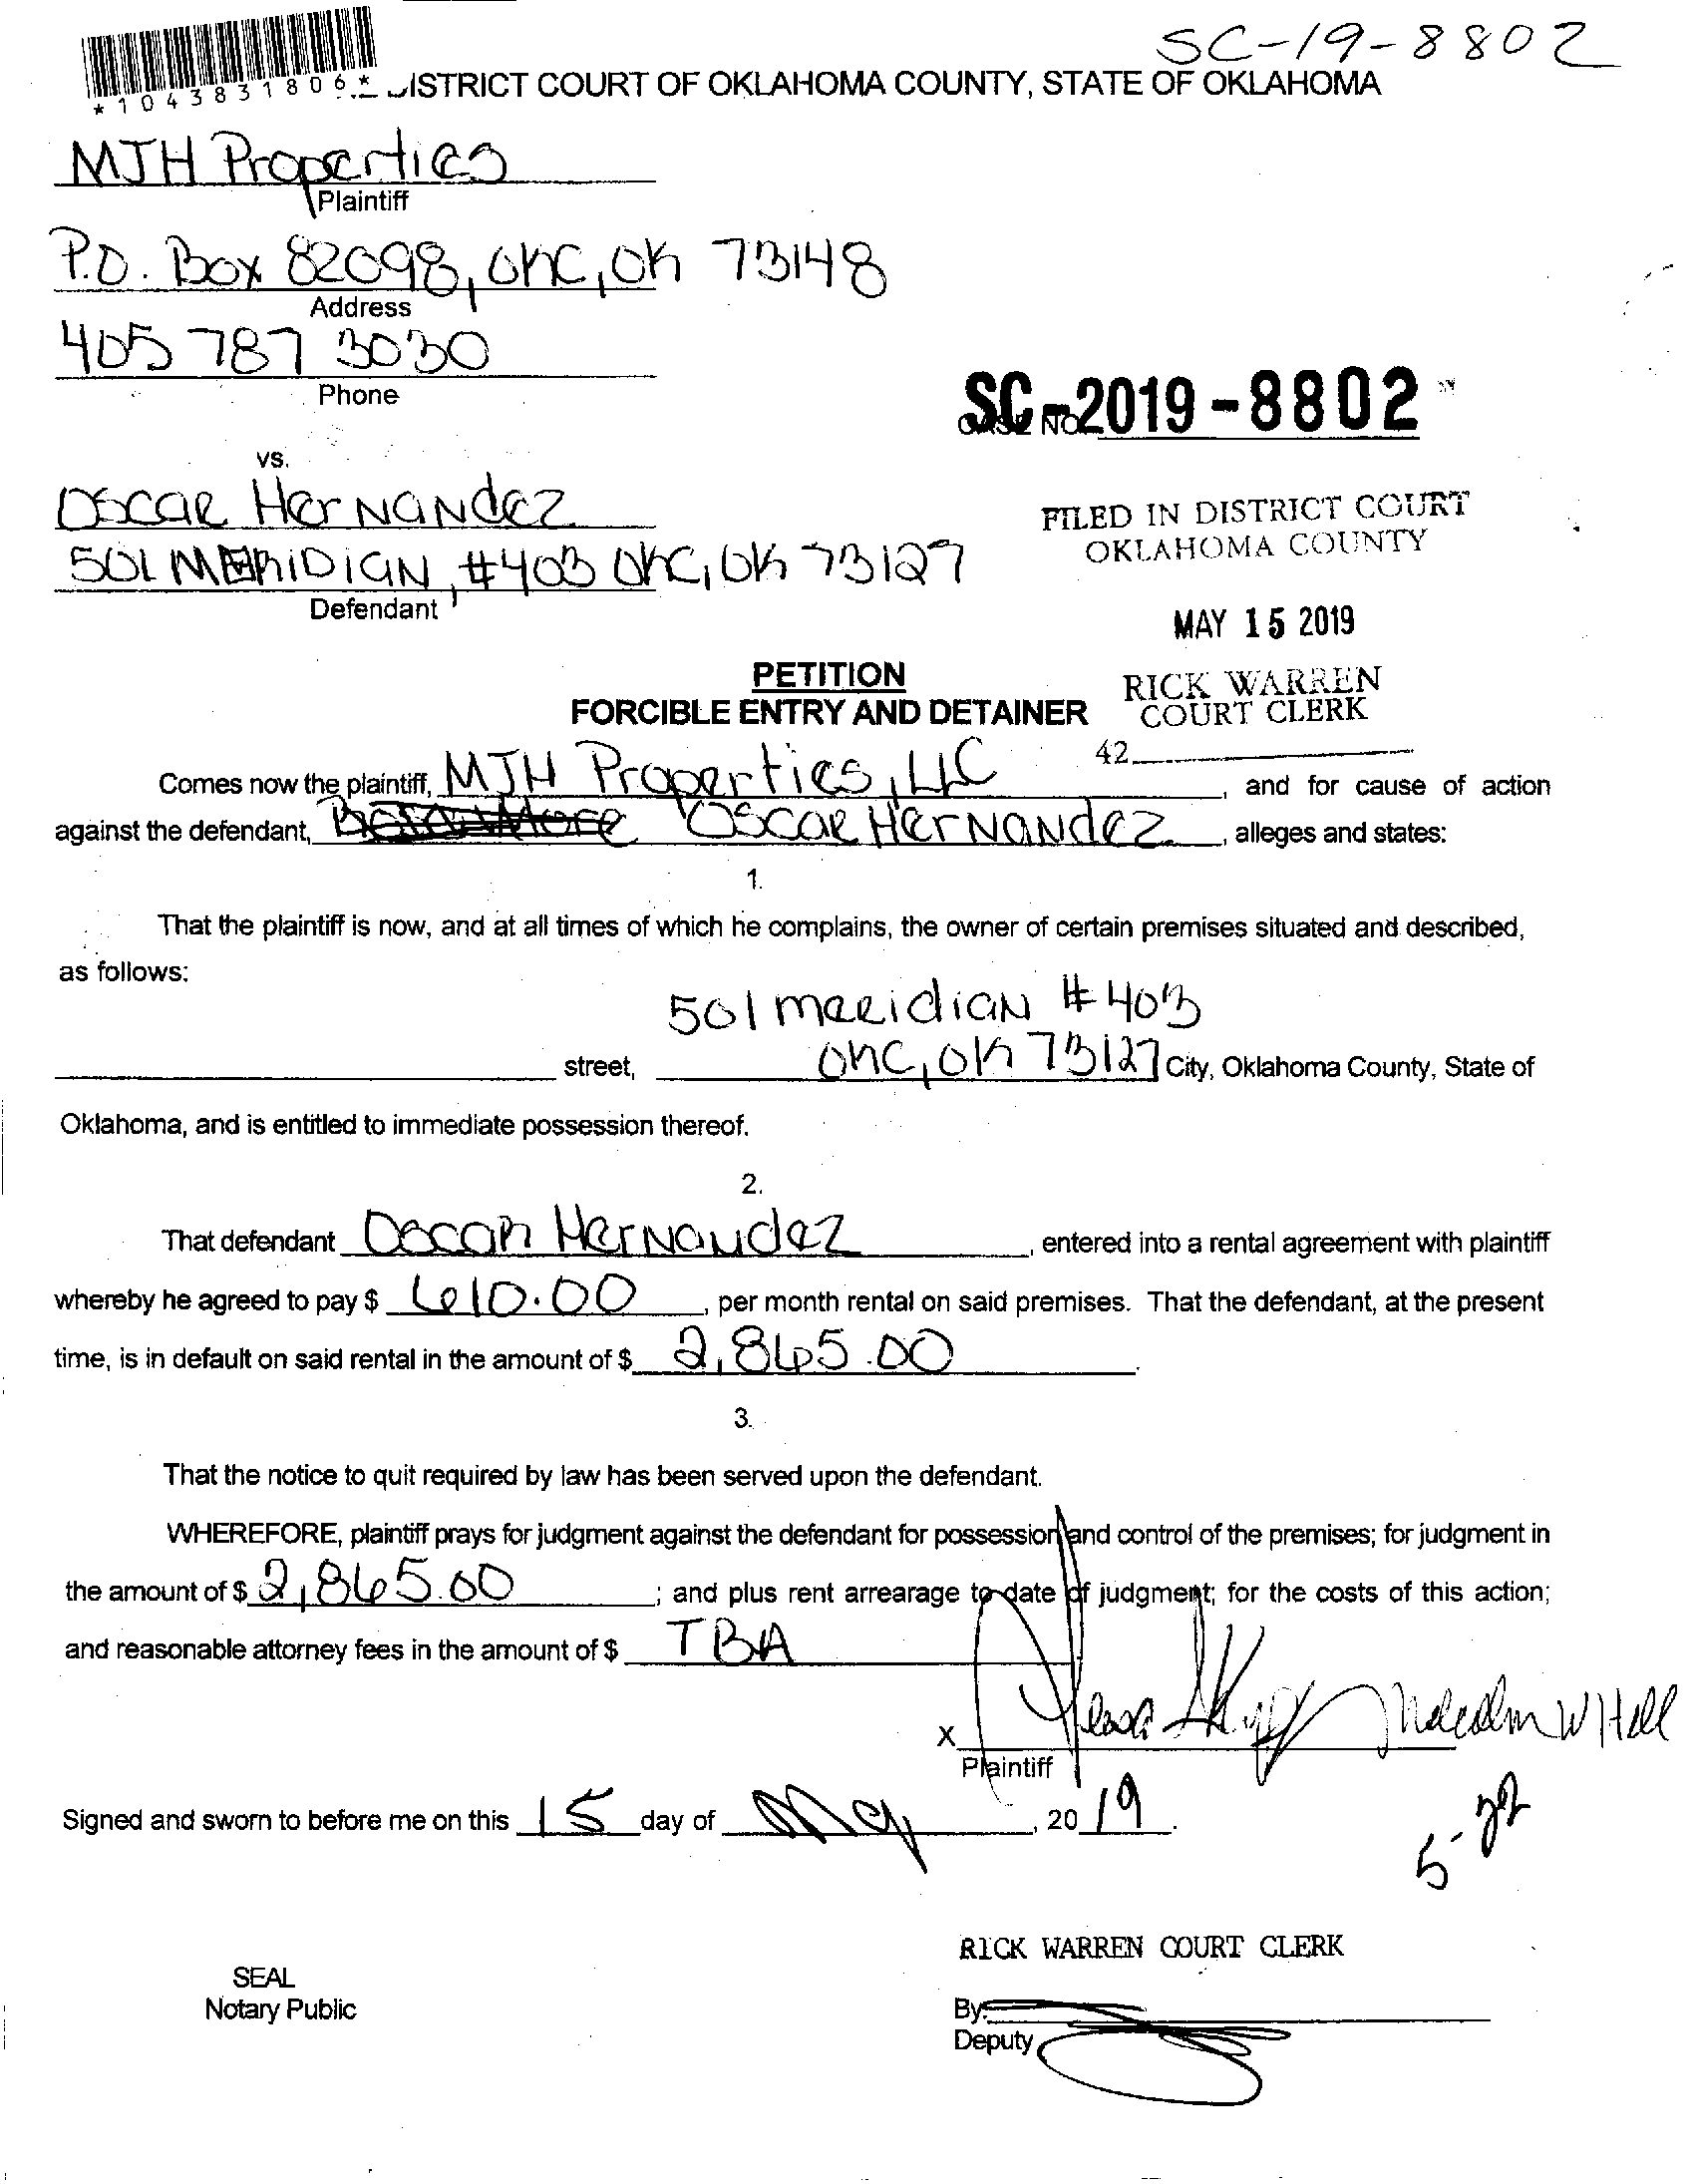 SC-19-8802
*1043831806*
ISTRICT COURT OF OKLAHOMA COUNTY, STATE OF OKLAHOMA
MJH Properties
Plaintiff
P.O. Box 82098, OKC, OK 73148
Address
405 787 3030
Phone
SC-2019-8802
CASE NO.
vs.
Oscar Hernandez
501 MERIDIAN, #403 OKC, OK 73127
Defendant
FILED IN DISTRICT COURT
OKLAHOMA COUNTY
MAY 15 2019
PETITION
FORCIBLE ENTRY AND DETAINER
RICK WARREN
COURT CLERK
42
Comes now the plaintiff, MJH Properties, LLC, and for cause of action
against the defendant, Oscar Hernandez, alleges and states:
1.
That the plaintiff is now, and at all times of which he complains, the owner of certain premises situated and described,
as follows:
501 meridian #403
street, OKC, OK 73127 City, Oklahoma County, State of
Oklahoma, and is entitled to immediate possession thereof.
2.
That defendant Oscar Hernandez, entered into a rental agreement with plaintiff
whereby he agreed to pay $ 610.00, per month rental on said premises. That the defendant, at the present
time, is in default on said rental in the amount of $ 2,865.00.
3.
That the notice to quit required by law has been served upon the defendant.
WHEREFORE, plaintiff prays for judgment against the defendant for possession and control of the premises; for judgment in
the amount of $ 2,865.00; and plus rent arrearage to date of judgment; for the costs of this action;
and reasonable attorney fees in the amount of $ TBA
X Malcolm W Hall
Plaintiff
Signed and sworn to before me on this 15 day of May, 20 19.
5-22
RICK WARREN COURT CLERK
SEAL
Notary Public
By:
Deputy